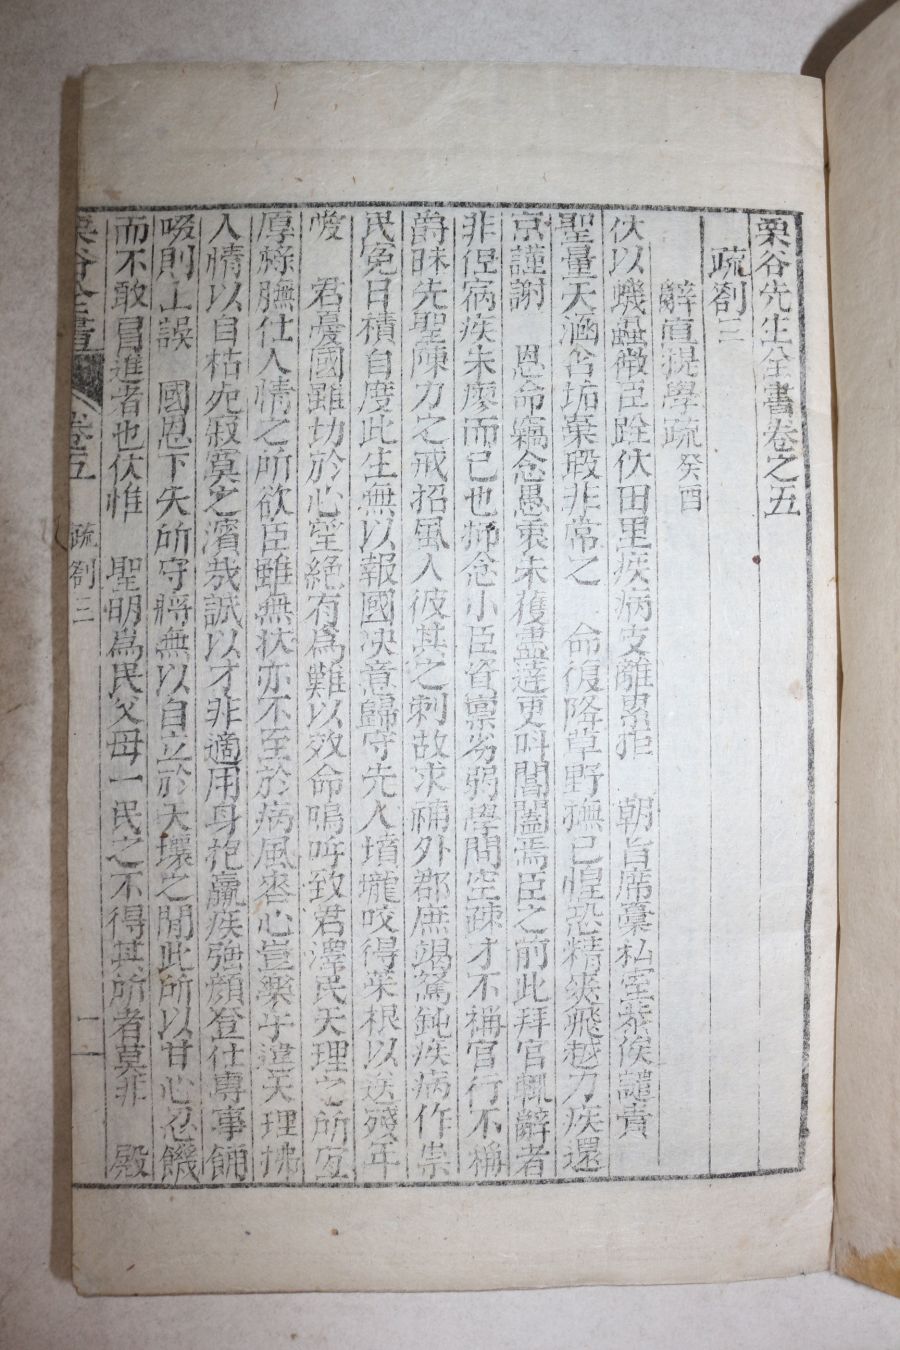 栗谷先生全書卷之五
疏劄三
辭直提學疏 癸酉
伏以蟣蝨微臣跧伏田里疾病支離累拒 朝旨席藁私室恭俟譴責
聖量天涵含垢棄瑕非常之 命復降草野撫己惶恐精爽飛越力疾還
京謹謝 恩命竊念愚衷未獲盡達更叫閽闔焉臣之前此拜官輒辭者
非但病疾未瘳而已也抑念小臣資稟劣弱學問空疎才不稱官行不稱
爵昧先聖陳力之戒招風人彼其之刺故求補外郡庶竭駑鈍疾病作祟
民冤日積自度此生無以報國決意歸守先人墳壠咬得菜根以送殘年
愛 君憂國雖切於心望絶有爲難以效命嗚呼致君澤民天理之所宜
厚祿膴仕人情之所欲臣雖無狀亦不至於病風喪心豈樂乎違天理拂
人情以自枯死寂寞之濱哉誠以才非適用身抱羸疾強顔登仕專事餔
啜則上誤 國恩下失所守將無以自立於天壤之間此所以甘心忍饑
而不敢冒進者也伏惟 聖明爲民父母一民之不得其所者莫非 殿
栗谷全書 卷五 疏劄三 一